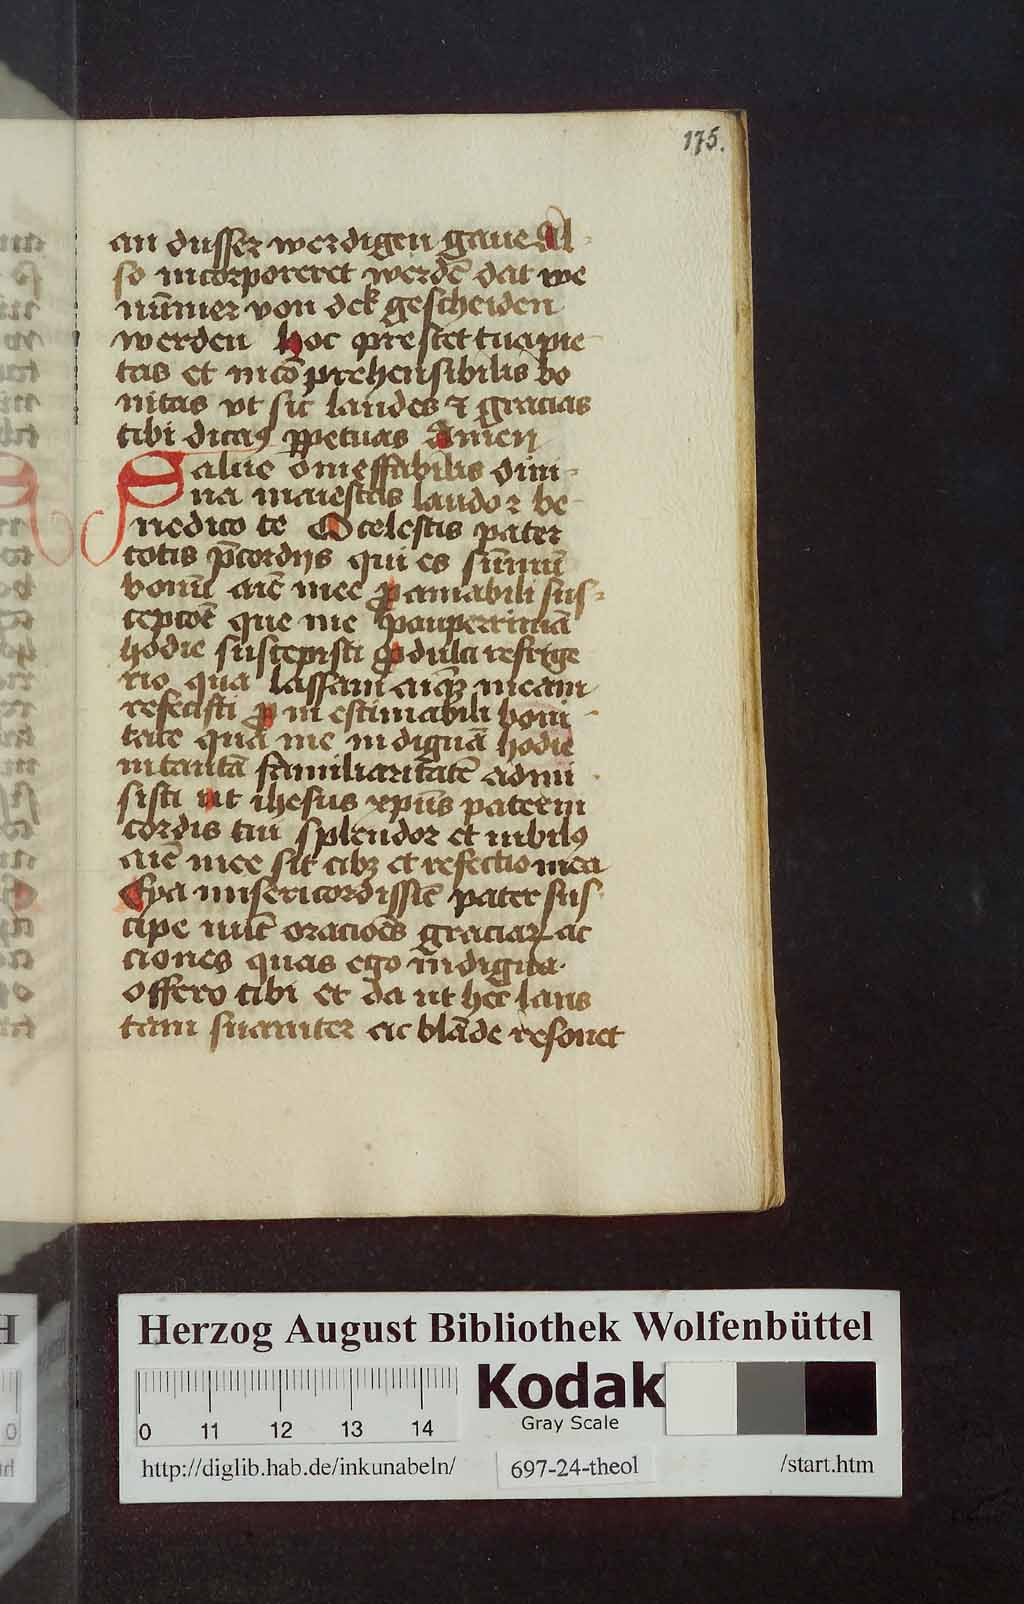 175.
an dusser werdigen gaue Al-
so incorporeret werdē dat we
nūmer von dek gescheiden
werden hoc prestet tua pie
tas et incōprehensibilis bo
nitas vt sic laudes ⁊ gracias
tibi dicaꝰ ꝑpetuas Amen
Salue o ineffabilis diui-
na maiestas laudo ⁊ be-
nedico te O celestis pater
totis p̄cordijs qui es sūmū
bonū aīe mee ꝓ amabili sus-
cepcōe que me pauperrimā
hodie suscepisti ꝓ dulci refrige
rio qua lassam aīqꝫ meam
refecisti ꝓ inestimabili boni-
tate qua me indignā hodie
in tantā familiaritatē admi-
sisti ut ihesus xpūs paterni
cordis tui splendor et iubilꝰ
aīe mee sit cibꝫ et refectio mea
Eya misericordissīe pater sus
cipe nūc oracioēs graciaꝝ ac
ciones quas ego īndigna
offero tibi et da ut hec laus
tam suauiter ac blāde resonet
Herzog August Bibliothek Wolfenbüttel
0 11 12 13 14
Kodak
Gray Scale
http://diglib.hab.de/inkunabeln/ 697-24-theol /start.htm